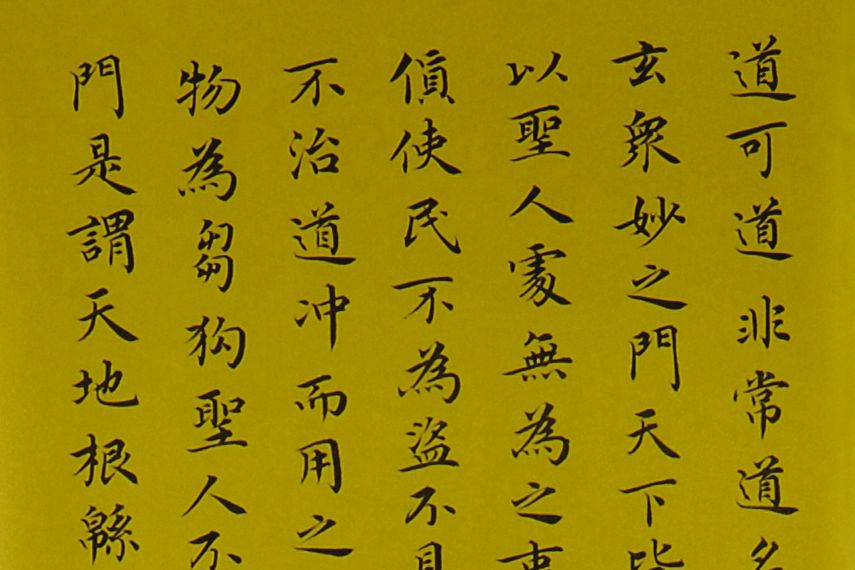 道可道非常道名
玄衆妙之門天下皆
以聖人處無為之事
貨使民不為盜不見
不治道冲而用之
物為芻狗聖人不
門是謂天地根緜